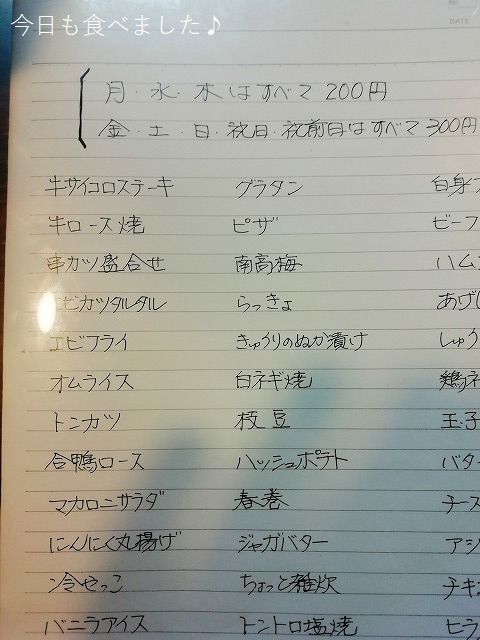 今日も食べました♪
DATE
月・水・木はすべて200円
金・土・日・祝日・祝前日はすべて300円
牛サイコロステーキ グラタン 白身フ
牛ロース焼 ピザ ビーフ
串カツ盛合せ 南高梅 ハム
エビカツタルタル らっきょ あげ
エビフライ きゅうりのぬか漬け しゅう
オムライス 白ネギ焼 鶏ネ
トンカツ 枝豆 玉子
合鴨ロース ハッシュポテト バター
マカロニサラダ 春巻 チーズ
にんにく丸揚げ ジャガバター アジ
冷やっこ ちょっと雑炊 チキ
バニラアイス トントロ塩焼 ヒラ